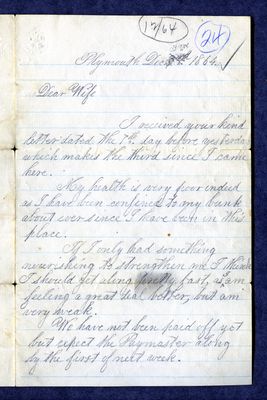 12/64
24
Plymouth Dec 1864
Dear Wife
I received your kind
letter dated the 7th day before yesterday
which makes the third since I came
here.
My health is very poor indeed
as I have been confined to my bunk
about ever since I have been in this
place.
If I only had something
nourishing to strengthen me I think
I should get along pretty fast, as am
feeling a great deal better, but am
very weak.
We have not been paid off yet
but expect the Paymaster along
by the first of next week.